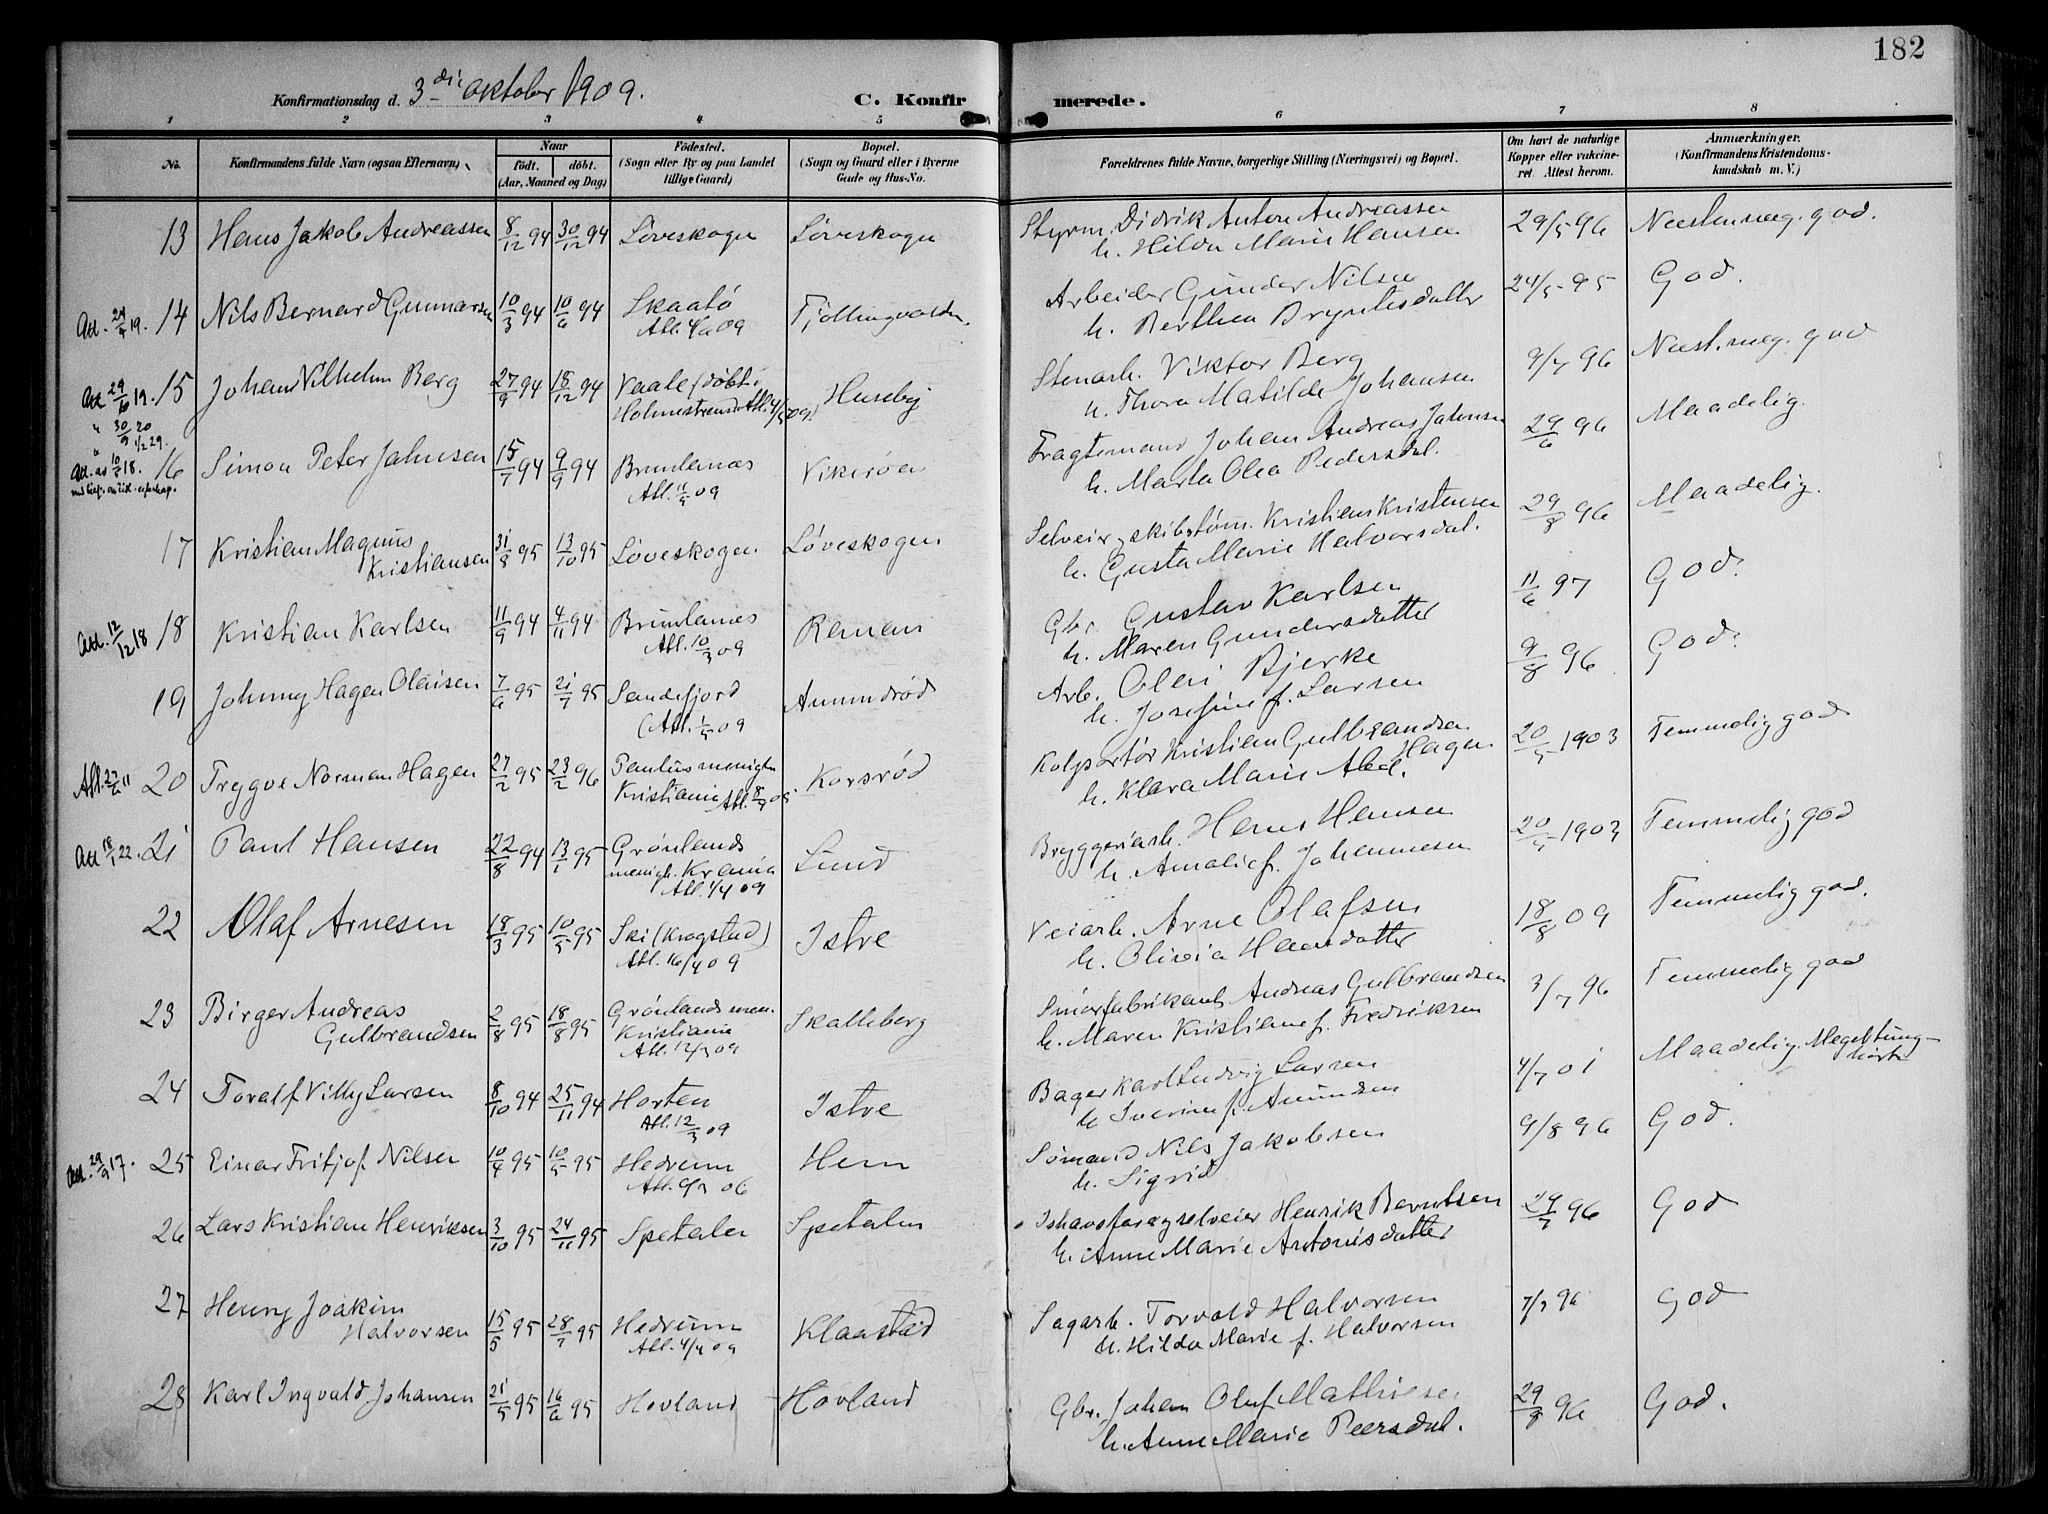 182
Konfirmationsdag d. 3die Oktober 1909. C. Konfirmerede.
1 2 3 4 5 6 7 8
No. Konfirmandens fulde Navn (ogsaa Efternavn). Naar født. døbt. (Aar, Maaned og Dag) Fødested. (Sogn eller By og paa Landet tillige Gaard) Bopæl. (Sogn og Gaard eller i Byerne Gade og Hus-No. Forældrenes fulde Navne, borgerlige Stilling (Næringsvei) og Bopæl. Om havt de naturlige Kopper eller vakcineret. Attest herom. Anmærkninger. (Konfirmandens Kristendomskundskab m. V.)
13 Hans Jakob Andreassen 8/12 94 30/12 94 Løveskogen Løveskogen Styrm. Didrik Anton Andreassen 29/5 96 Næsten meg. god.
h. Hilda Marie Hansen
Att. 24/4 19. 14 Nils Bernard Gunnarsen 10/3 94 10/6 94 Skaatø Tjøllingvolden Arbeider Gunder Nilsen 24/5 95 God.
Att. 4/2 09 h. Berthea Bryntesdatter
Att 29/6 19. 15 Johan Vilhelm Berg 27/9 94 18/12 94 Vaale (døbt i Huseby Stenarb. Viktor Berg 9/7 96 Næst. meg. god
" 30/9 20 Holmestrand Att. 4/5 09) h. Thora Matilde Johansen
" 1/2 29.
Att. av 10/5 18. 16 Simon Peter Jahnsen 15/7 94 9/9 94 Brunlanes Vikerøa Fragtemand Johan Andreas Jahnsen 29/6 96 Maadelig.
Att. 11/5 09 h. Marta Olea Pedersdat.
17 Kristian Magnus 31/8 95 13/10 95 Løveskogen. Løveskogen Selveier, skibstøm. Kristian Kristensen 29/8 96 Maadelig.
Kristiansen h. Gusta Marie Halvorsdat.
Att. 12/12 18 18 Kristian Karlsen 11/9 94 4/11 94 Brunlanes Reman Gbr. Gustav Karlsen 11/6 97 God.
Att. 10/3 09 h. Maren Gundersdatter
19 Johnny Hagen Olaisen 7/6 95 21/7 95 Sandefjord Anundrød Arb. Olai Bjerke 9/8 96 God.
(Att. 1/5 09 h. Josefine f. Larsen
Att. 27/6 11 20 Trygve Norman Hagen 27/2 95 23/2 96 Paulus menighed Korsrød Kolportør Kristian Gulbrandsen 20/5 1903 Temmelig god
Kristiania Att. 8/9 09. h. Klara Marie Abel. Hagen
Att 18/1 22. 21 Paul Hansen 22/8 94 13/1 95 Grønlands Lund Bryggeriarb. Hans Hansen 20/5 1903 Temmelig god
menigh. Krania h. Amalie f. Johannesen
Att. 1/4 09
22 Olaf Arnesen 18/3 95 10/5 95 Ski (Krogstad) Istre Veiarb. Arne Olafsen 18/8 09 Temmelig god.
Att. 16/4 09 h. Olivia Hansdatter
23 Birger Andreas 2/8 95 18/8 95 Grønlands men. Skalleberg Smørfabrikant Andreas Gulbrandsen 3/7 96 Temmelig god
Gulbrandsen Kristiania h. Maren Kristiane f. Fredriksen
Att. 12/3 09
24 Toralf Villy Larsen 8/10 94 25/11 94 Horten Istre Bager Karl Ludvig Larsen 4/7 01 Maadelig. Meget tunghørt
Att. 12/3 09 h. Iverine f. Amundsen
Att. 29/9 17. 25 Einar Fritjof Nilsen 10/4 95 10/5 95 Hedrum Hem Sømand Nils Jakobsen 9/8 96 God.
Att. 9/3 06 h. Sigrid
26 Lars Kristian Henriksen 3/10 95 24/11 95 Spetalen Spetalen Ishavsfarer, selveier Henrik Berntsen 29/7 96 God
h. Anne Marie Antonisdatter
27 Henny Joakim 15/5 95 28/7 95 Hedrum Klaastad Sagarb. Torvald Halvorsen 7/7 96 God
Halvorsen Att. 4/4 09 h. Hilda Marie f. Halvorsen
28 Karl Ingvald Johansen 21/5 95 16/6 95 Hovland Hovland Gbr. Johan Oluf Mathisen 29/8 96 God.
h. Anne Marie Peersdat.